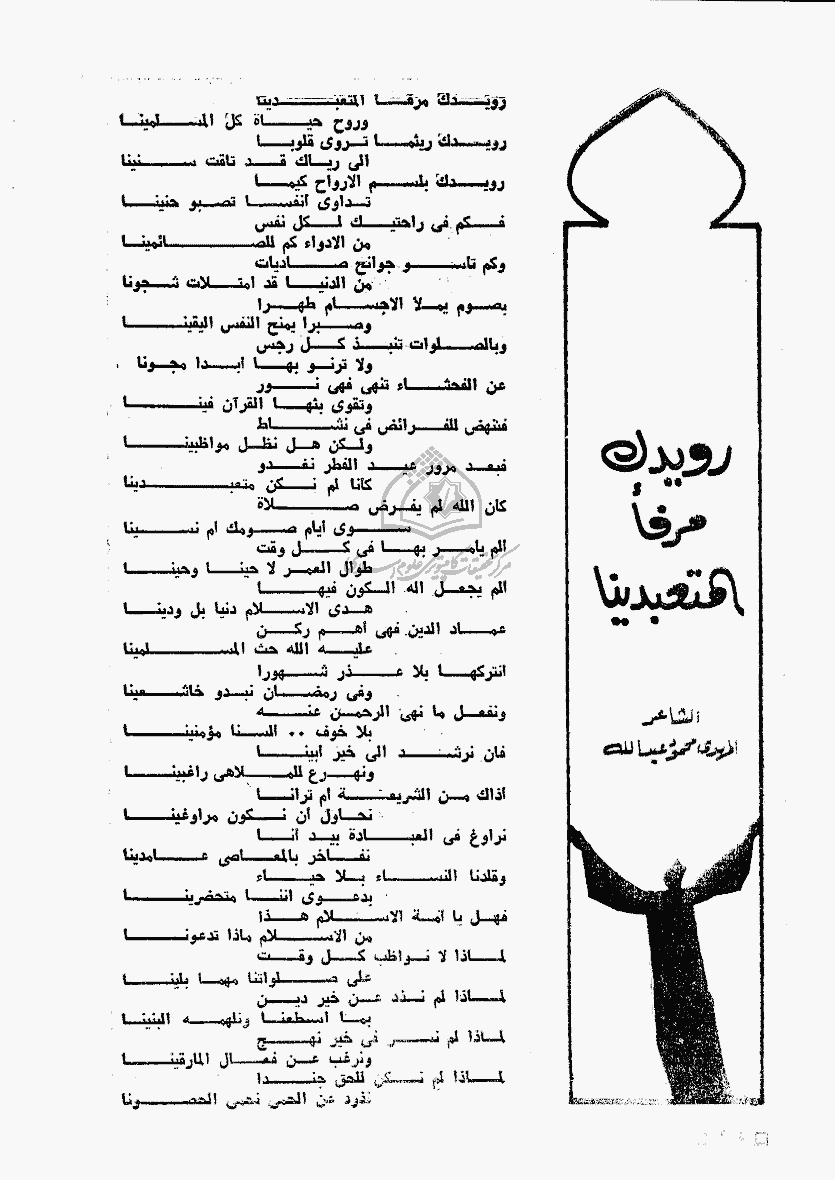 رويدك
مرفأ
المتعبدينا
الشاعر
المهدى محمود عبد الله
رويدك مرفا المتعبدينا
وروح حياة كل المسلمينا
رويدك ريثما تروى قلوبا
الى رياك قد تاقت سنينا
رويدك بلسم الارواح كيما
تداوى انفسا تصبو حنينا
فكم فى راحتيك لكل نفس
من الادواء كم للصائمينا
وكم تاسو جوانح صاديات
من الدنيا قد امتلات شجونا
بصوم يملا الاجسام طهرا
وصبرا يمنح النفس اليقينا
وبالصلوات تنبذ كل رجس
ولا ترنو بها ابدا مجونا
عن الفحشاء تنهى فهى نور
وتقوى بثها القرآن فينا
فننهض للفرائض فى نشاط
ولكن هل نظل مواظبينا
فبعد مرور عيد الفطر نغدو
كانا لم نكن متعبدينا
كان الله لم يفرض صلاة
سوى ايام صومك ام نسينا
الم يامر بها فى كل وقت
طوال العمر لا حينا وحينا
الم يجعل اله الكون فيها
هدى الاسلام دنيا بل ودينا
عماد الدين فهى أهم ركن
عليه الله حث المسلمينا
انتركها بلا عذر شهورا
وفى رمضان نبدو خاشعينا
ونفعل ما نهى الرحمن عنه
بلا خوف .. السنا مؤمنينا
فان نرشد الى خير ابينا
ونهرع للملاهى راغبينا
اذاك من الشريعة ام ترانا
نحاول أن نكون مراوغينا
نراوغ فى العبادة بيد انا
نفاخر بالمعاصى عامدينا
وقلدنا النساء بلا حياء
بدعوى اننا متحضرينا
فهل يا امة الاسلام هذا
من الاسلام ماذا تدعونا
لماذا لا نواظب كل وقت
على صلواتنا مهما بلينا
لماذا لم نذد عن خير دين
بما اسطعنا ونلهمه البنينا
لماذا لم نسر فى خير نهج
ونرغب عن فعال المارقينا
لماذا لم نكن للحق جندا
نذود عن الحمى نحمى الحصونا
مركز تحقيقات كامپيوترى علوم اسلامى